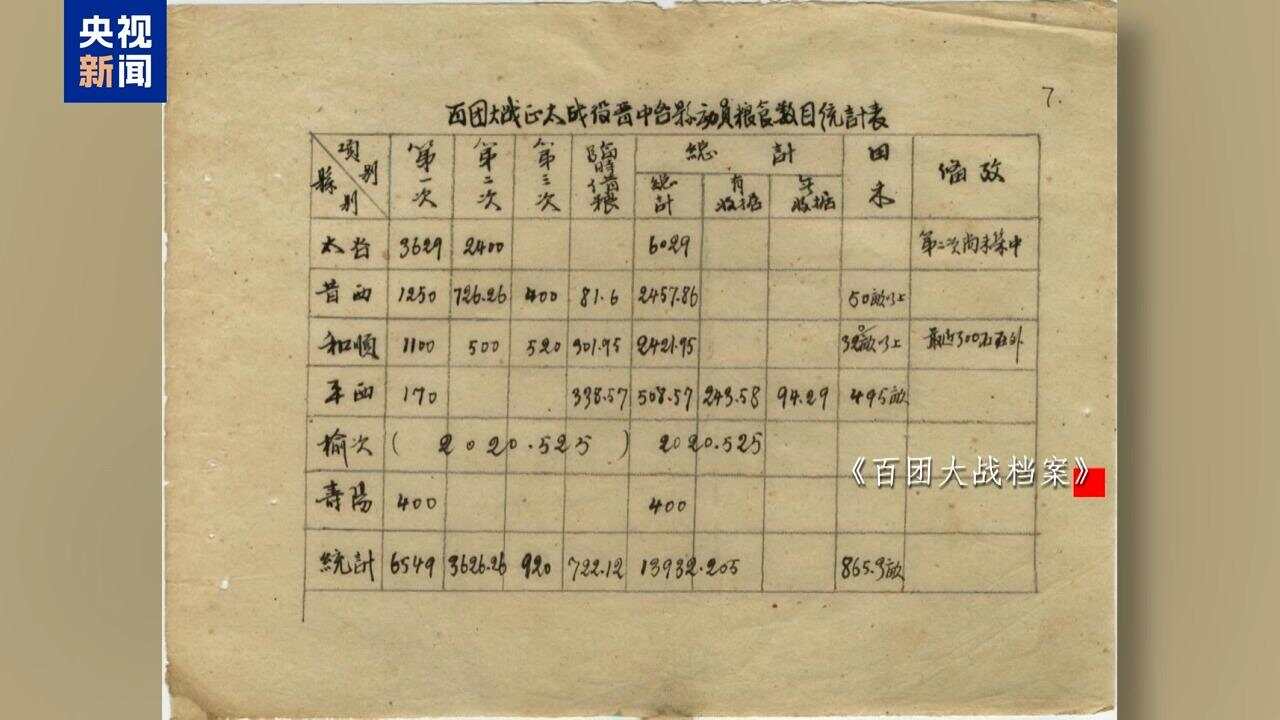 央视
新闻
7.
百团大战正太战役晋中各县动员粮食数目统計表
項别 縣别 第一次 第二次 第三次 臨時借粮 總計 田禾 備攷
總計 有收据 無收据
太谷 3629 2400 6029 第二次尚未集中
昔西 1250 726.26 400 81.6 2457.86 50畝以上
和順 1100 500 520 301.95 2421.95 320畝以上 最近300石在外
平西 170 338.57 508.57 243.58 94.29 495畝
榆次 ( 2020.525 ) 2020.525
壽陽 400 400
統計 6549 3626.26 920 722.12 13932.205 865.3畝
《百团大战档案》